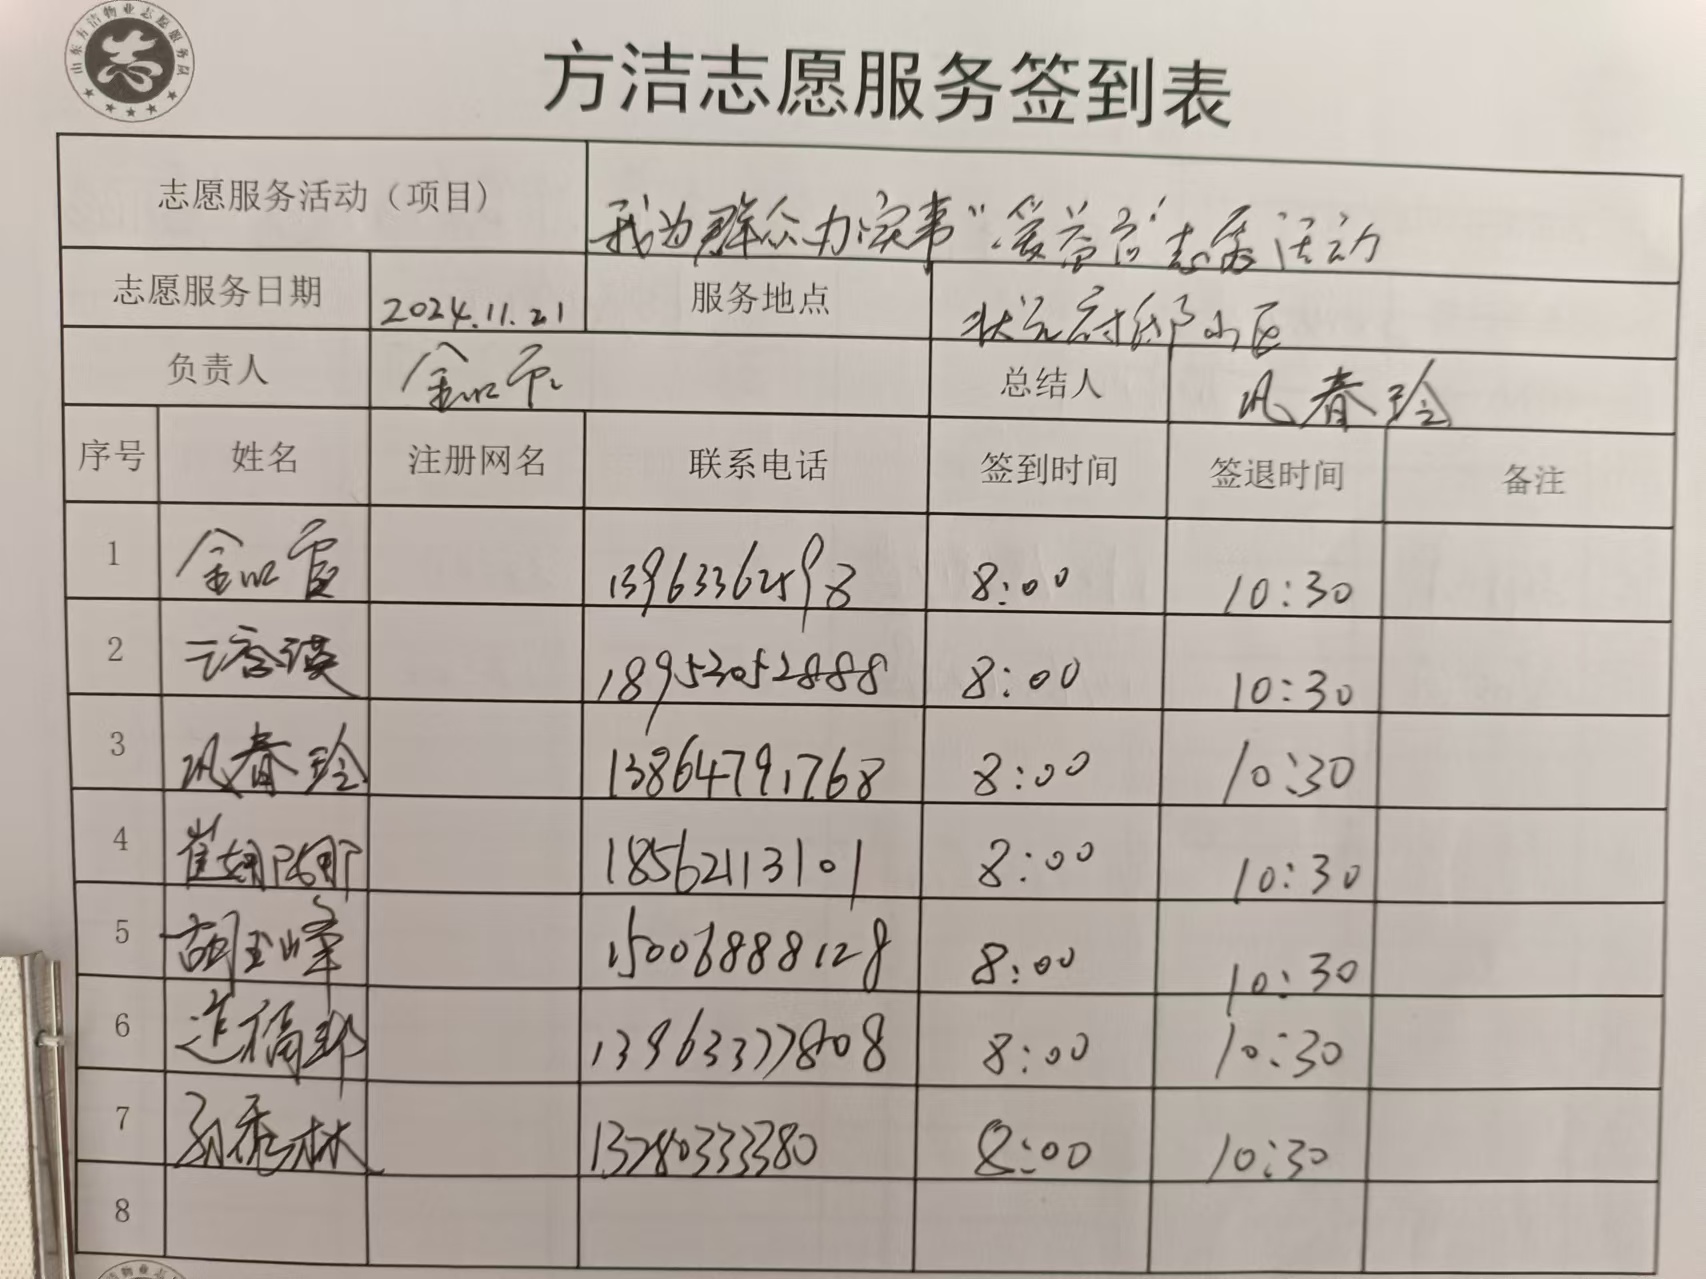 山东方洁物业志愿服务队
志
方洁志愿服务签到表
志愿服务活动（项目） 我为群众办实事“爱益家”志愿活动
志愿服务日期 2024.11.21 服务地点 状元府邸小区
负责人 总结人 巩春玲
序号 姓名 注册网名 联系电话 签到时间 签退时间 备注
1 13963362598 8:00 10:30
2 18953052888 8:00 10:30
3 巩春玲 13864791768 8:00 10:30
4 崔娜娜 18562113101 8:00 10:30
5 胡玉峰 15006888128 8:00 10:30
6 13963377808 8:00 10:30
7 孙秀林 13280333380 8:00 10:30
8